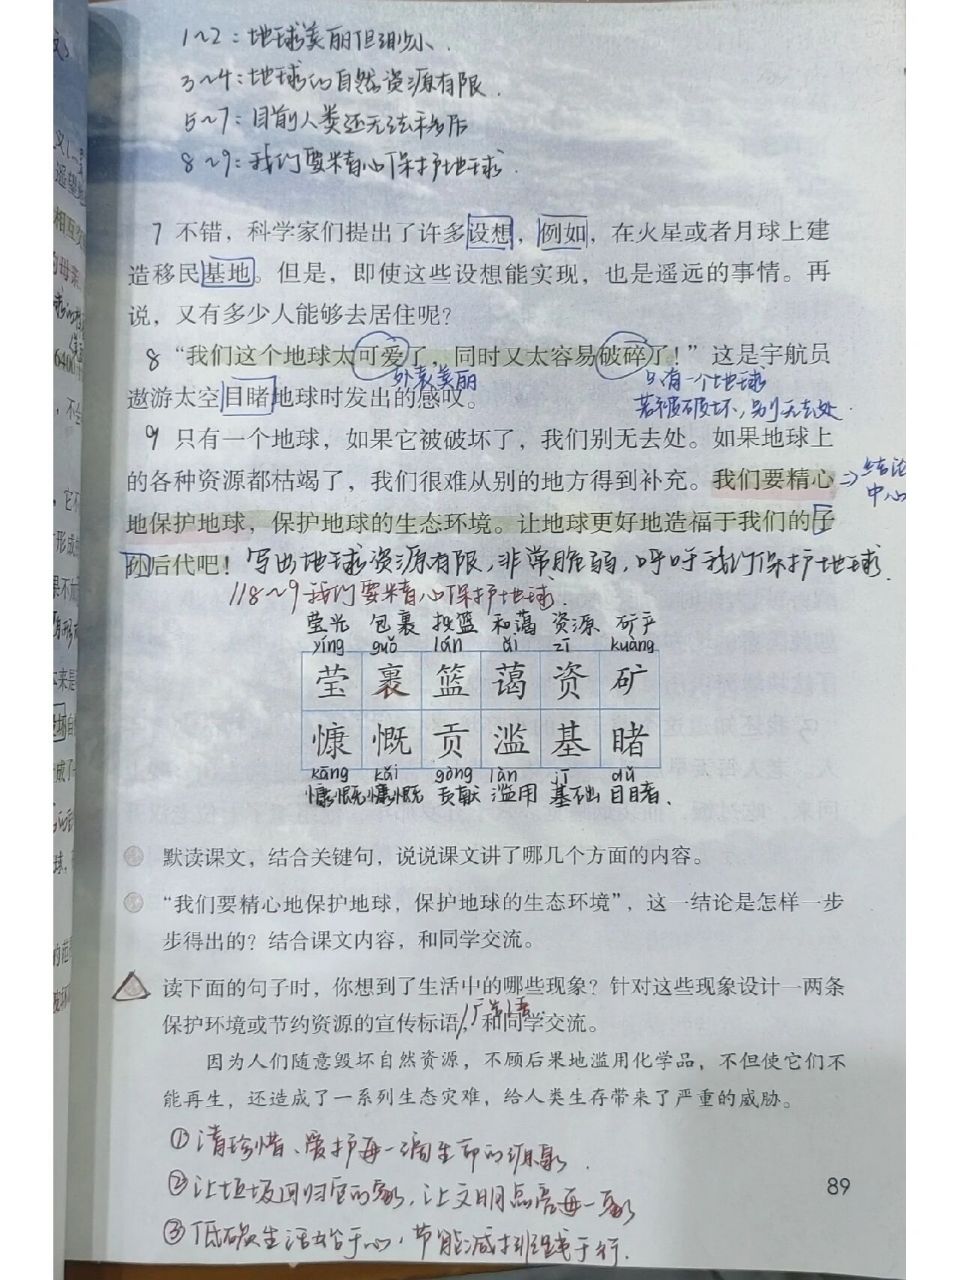 1~2：地球美丽但渺小．
3~4：地球的自然资源有限．
5~7：目前人类还无法移居
8~9：我们要精心保护地球．
7 不错，科学家们提出了许多设想，例如，在火星或者月球上建
造移民基地。但是，即使这些设想能实现，也是遥远的事情。再
说，又有多少人能够去居住呢？
8 “我们这个地球太可爱了，同时又太容易破碎了！”这是宇航员
外表美丽
只有一个地球
遨游太空目睹地球时发出的感叹。
若被破坏，别无去处．
9 只有一个地球，如果它被破坏了，我们别无去处。如果地球上
的各种资源都枯竭了，我们很难从别的地方得到补充。我们要精心
结论
中心
地保护地球，保护地球的生态环境。让地球更好地造福于我们的子
孙后代吧！写出地球资源有限，非常脆弱，呼吁我们保护地球．
118~9我们要精心保护地球．
莹光 包裹 投篮 和蔼 资源 矿产
yíng guǒ lán ǎi zī kuàng
莹 裹 篮 蔼 资 矿
慷 慨 贡 滥 基 睹
kāng kǎi gòng làn jī dǔ
慷慨 慷慨 贡献 滥用 基础 目睹．
默读课文，结合关键句，说说课文讲了哪几个方面的内容。
“我们要精心地保护地球，保护地球的生态环境”，这一结论是怎样一步
步得出的？结合课文内容，和同学交流。
读下面的句子时，你想到了生活中的哪些现象？针对这些现象设计一两条
广告语．
保护环境或节约资源的宣传标语，和同学交流。
因为人们随意毁坏自然资源，不顾后果地滥用化学品，不但使它们不
能再生，还造成了一系列生态灾难，给人类生存带来了严重的威胁。
①请珍惜、爱护每一滴生命的源泉．
②让垃圾回归它的家，让文明点亮每一家
③低碳生活始于心，节能减排践于行．
89